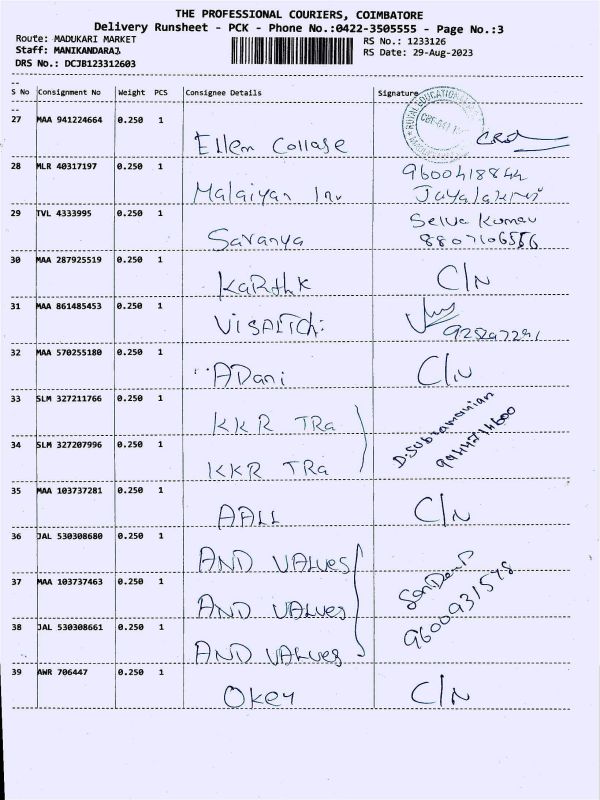 THE PROFESSIONAL COURIERS, COIMBATORE
Delivery Runsheet - PCK - Phone No.:0422-3505555 - Page No.:3
Route: MADUKARI MARKET
RS No.: 1233126
Staff: MANIKANDARAJ
RS Date: 29-Aug-2023
DRS No.: DCJB123312603
S No Consignment No Weight PCS Consignee Details Signature
27 MAA 941224664 0.250 1
Ellem Collage
28 MLR 40317197 0.250 1 9600418844
Malaiyan Jayalakshmi
29 TVL 4333995 0.250 1 Selva Kumar
Saranya 8807106556
30 MAA 287925519 0.250 1
Karthk C/N
31 MAA 861485453 0.250 1
VISALTChi
32 MAA 570255180 0.250 1
ADani C/N
33 SLM 327211766 0.250 1
KKR TRa D.Subramanian
34 SLM 327207996 0.250 1
KKR TRa
35 MAA 103737281 0.250 1
AALL C/N
36 JAL 530308680 0.250 1
AND VALUes
37 MAA 103737463 0.250 1
AND VALUes
38 JAL 530308661 0.250 1 9600931598
AND VALUes
39 AWR 706447 0.250 1
Okey C/N